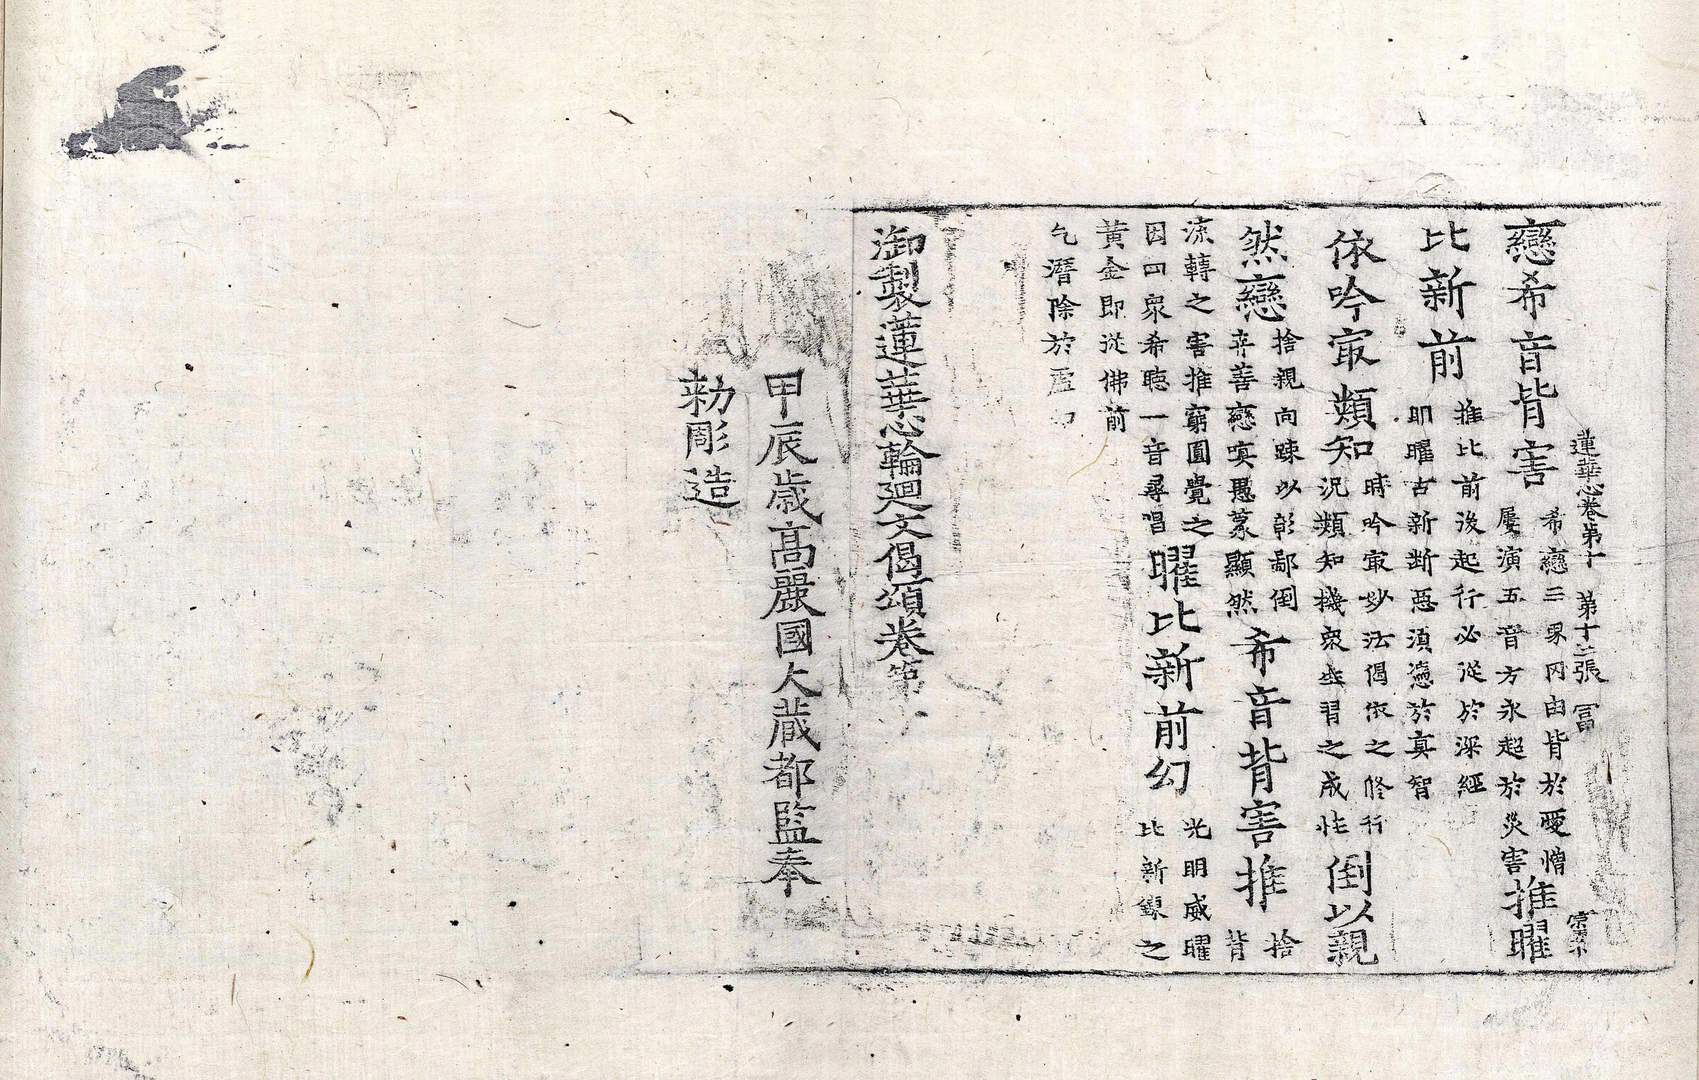 蓮華心卷第十　第十二張　冨
戀希音背害
希戀三界內由背於愛憎
屢演五音方永超於災害
推曜
比新前
推比前後起行必從於深經
即曜古新断惡湏憑於真智
依吟㝡類知
時吟㝡妙法偈依之修行
況類知機衆生習之成性
倒以親
然戀
捨親向踈以彰鄙倒
弃善戀嗔愚蒙顯然
希音背害推
捨
背
流轉之害推窮圓覺之
因四衆希聽一音尋唱
曜比新前幻
光明威曜
比新鍊之
黃金即從佛前
气潛除於虛幻
御製蓮華心輪廻文偈頌卷第
甲辰歲高麗國大藏都監奉
勑彫造